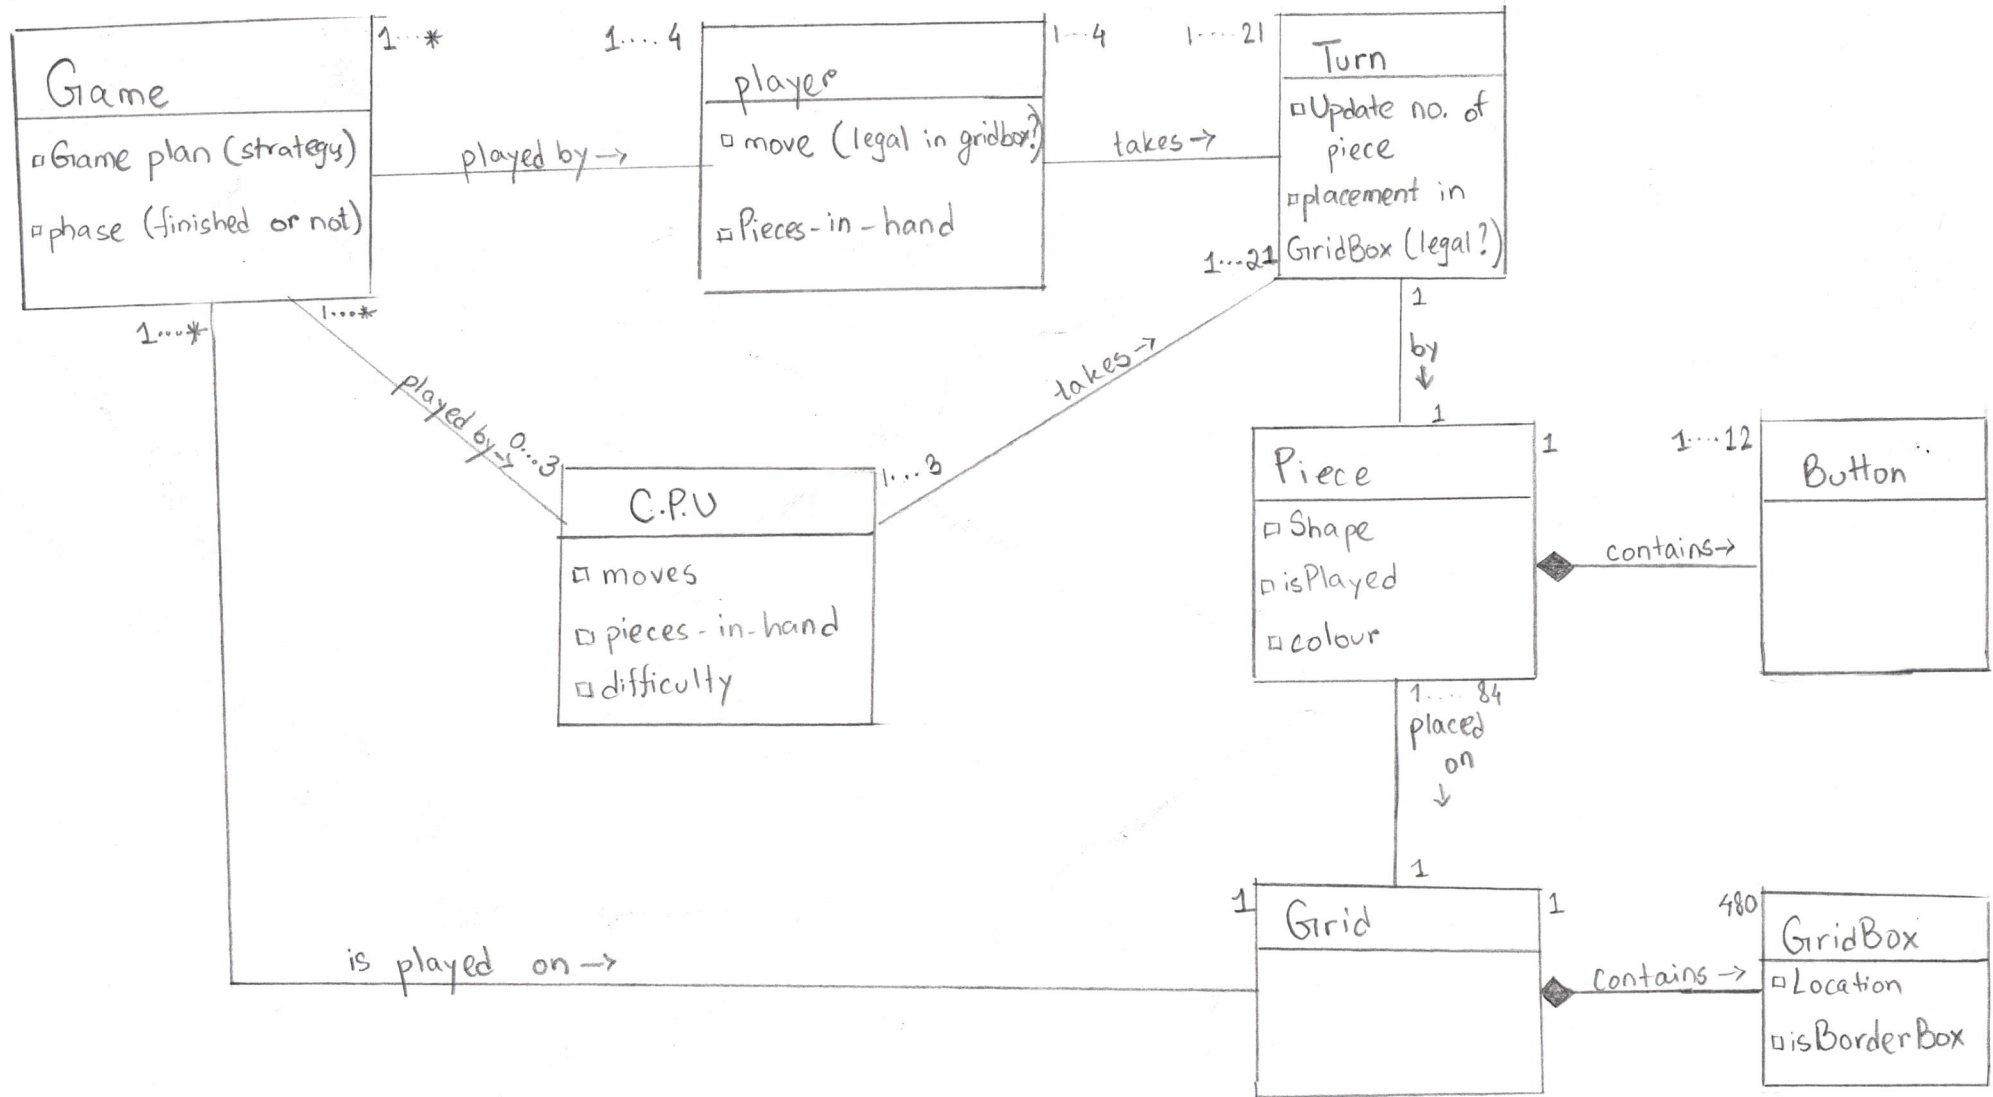 Game
▫Game plan (strategy)
▫phase (finished or not)
1...*
played by→
1....4
player
▫move (legal in gridbox?)
▫Pieces-in-hand
1...4
takes→
1....21
Turn
▫Update no. of
piece
▫placement in
GridBox (legal?)
1...21
1...*
1....*
played by→
0...3
C.P.U
▫moves
▫pieces-in-hand
▫difficulty
1...3
takes→
1
by
↓
1
Piece
▫Shape
▫isPlayed
▫colour
1
contains→
1....12
Button
1.....84
placed
on
↓
1
is played on→
1
Grid
1
contains→
480
GridBox
▫Location
▫isBorderBox